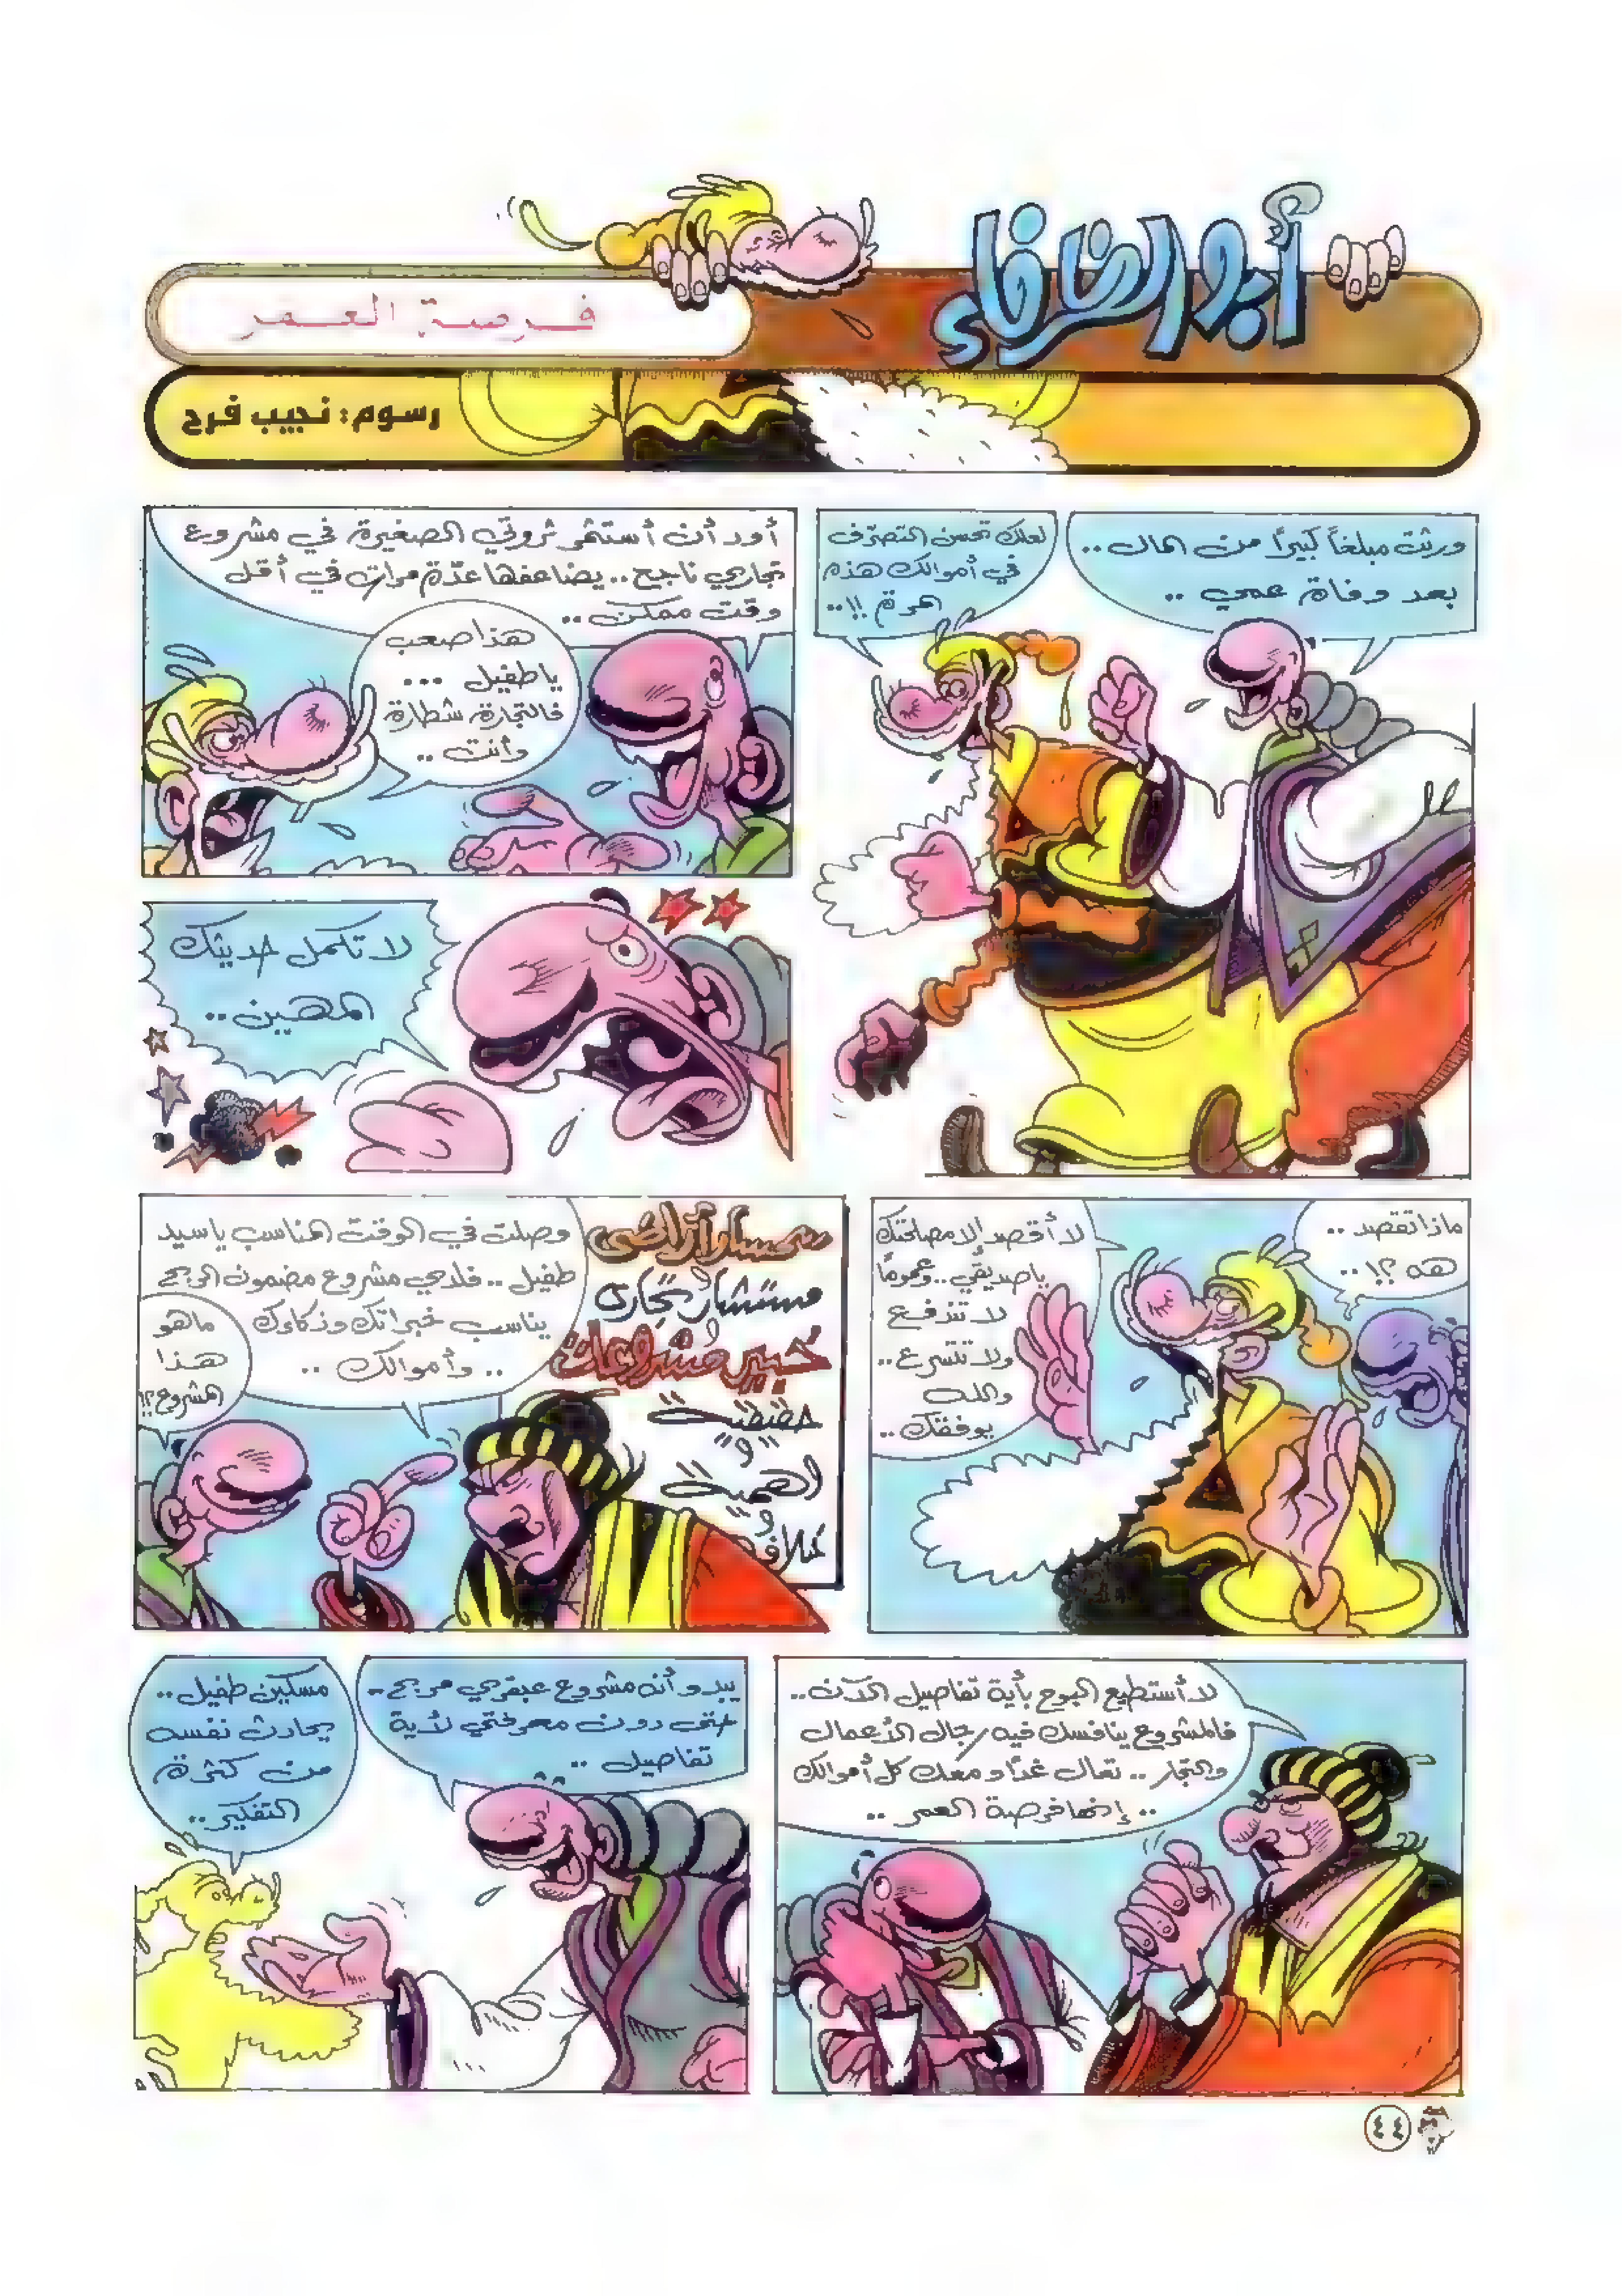 أبو الظرفاء
فرصة العمر
رسوم: نجيب فرح
ورثت مبلغاً كبيراً من المال ..
بعد وفاة عمي ..
لعلك تحسن التصرّف
في أموالك هذه
المرة !!..
أود أن أستثمر ثروتي الصغيرة في مشروع
تجاري ناجح .. يضاعفها عدّة مرات في أقل
وقت ممكن ..
هذا صعب
يا طفيل ...
فالتجارة شطارة
وأنت ..
لا تكمل حديثك
المهين ..
ماذا تقصد ..
هه ؟!..
لا أقصد إلا مصلحتك
يا صديقي .. وعموماً
لا تندفع
ولا تتسرع ..
والله
يوفقك ..
سمسار أراضى
مستشار تجارى
خبير مشروعات
حقيقية
و
وهمية
و
خلافه
وصلت في الوقت المناسب يا سيد
طفيل .. فلدي مشروع مضمون الربح
يناسب خبراتك وذكاءك
.. وأموالك ..
ما هو
هذا
المشروع ؟!
لا أستطيع البوح بأية تفاصيل الآن ..
فالمشروع ينافسك فيه رجال الأعمال
والتجار .. تعال غداً ومعك كل أموالك
.. إنها فرصة العمر ..
يبدو أنه مشروع عبقري مربح ..
حتى دون معرفتي لأية
تفاصيل ..
مسكين طفيل ..
يحادث نفسه
من كثرة
التفكير ..
٤٤